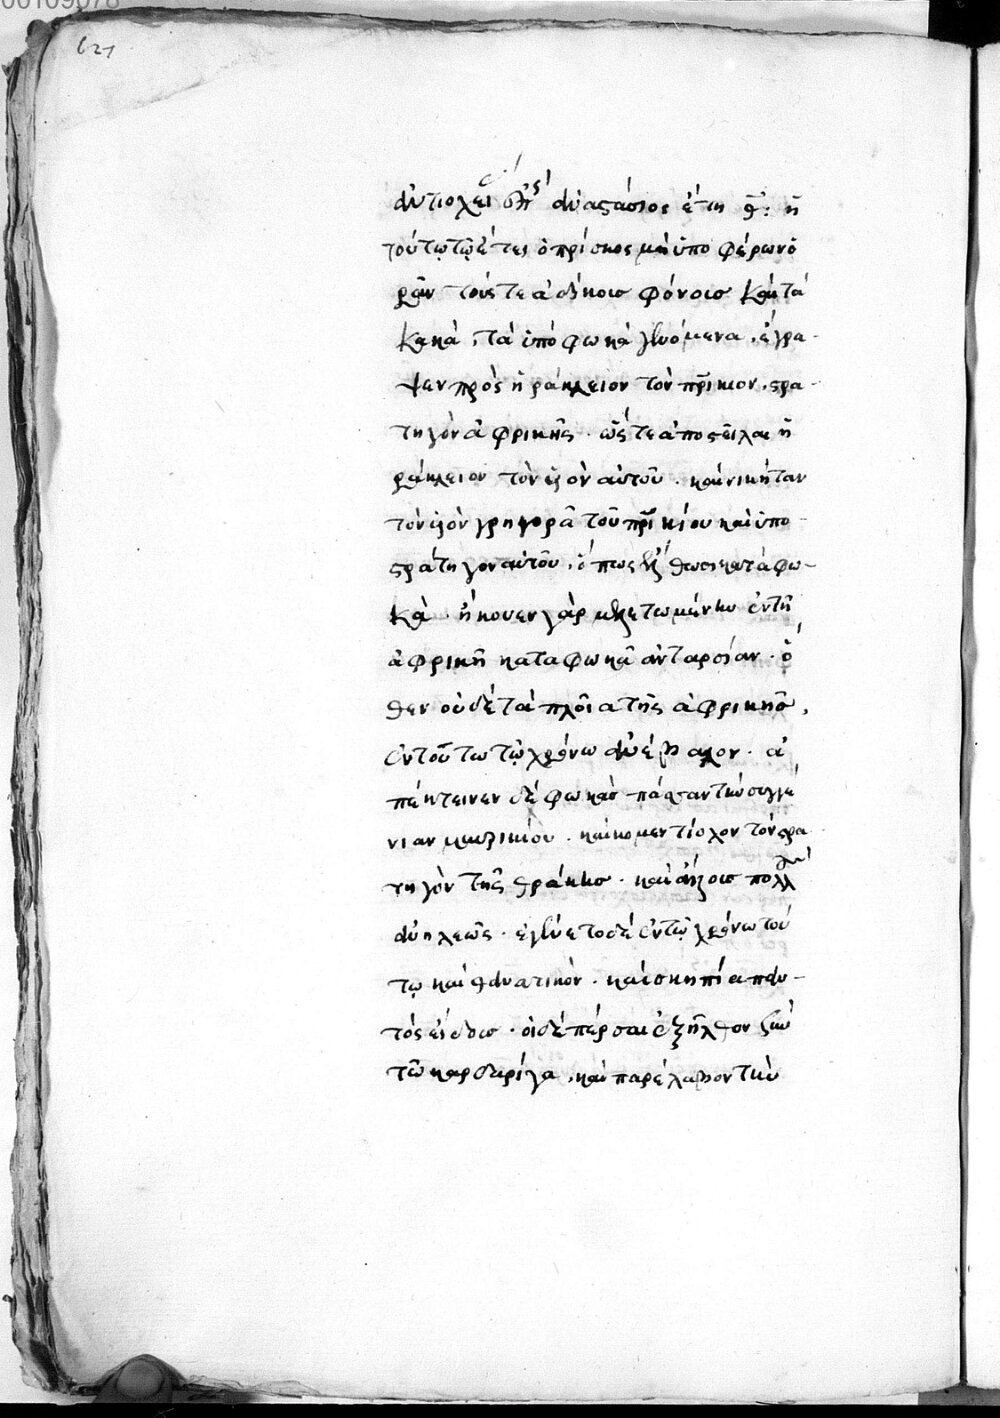 00109078
621
ἀντιοχεί ἐπίς ἀναστάσιος ἔτη θ: η
τούτῳ τῷ ἔτει ὁ πρίσκος μὴ ὑποφέρων ὁ
ρᾶν τούς τε ἀδίκοις φόνοις καὶ τὰ
κακὰ, τὰ ὑπὸ φωκᾶ γινόμενα, ἔγρα-
ψεν πρὸς ἡράκλειον τὸν πρίκιον, στρα-
τηγὸν ἀφρικῆς. ὥς τε ἀποστεῖλαι ἡ
ράκλειον τὸν υἱὸν αὐτοῦ. καὶ νικήταν
τὸν υἱὸν γρηγορᾶ τοῦ πρικίου καὶ ὑπο-
στρατήγον αὐτοῦ, ὅπως ἔλθωσι κατὰ φω-
κᾶ. ἤκουεν γὰρ μελετωμένην ἐν τῇ
ἀφρικῇ κατα φωκᾶ ἀνταρσίαν. ὅ
θεν οὐδὲ τὰ πλοῖα τῆς ἀφρικῆς,
ἐν τούτω τῷ χρόνω ἀνέβαλον. ἀ
πέκτεινεν δὲ φωκᾶς πάσαν τὴν συγγέ
νιαν μαυρικίου. καὶ κομεντίολον τὸν στρα
τηγὸν τῆς θράκης. καὶ ἄλλοις πολλοὺς
ἀνηλεῶς. ἐγίνετο δὲ ἐν τῷ χρόνω τού
τῳ καὶ θανατικὸν. καὶ σκηπία παν-
τὸς εἴδους. οἱ δὲ πέρσαι ἐξῆλθον σὺν
τῶ καρδαρίγα, καὶ παρέλαβον τὴν